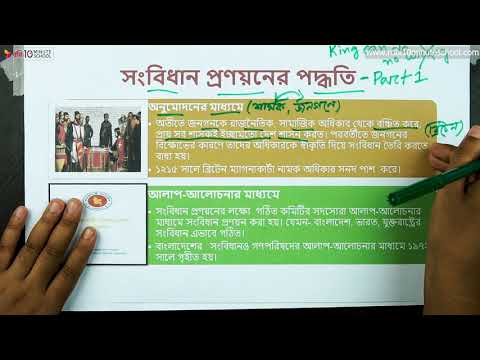 রবি 10 MINUTE SCHOOL
www.robi10minuteschool.com
King can do
no wrong
সংবিধান প্রণয়নের পদ্ধতি - Part 1
অনুমোদনের মাধ্যমে (শাসক, জনগনে)
• অতীতে জনগনকে রাজনৈতিক সামাজিক অধিকার থেকে বঞ্চিত করে
প্রায় সব শাসকই ইচ্ছামতো দেশ শাসন করত। পরবর্তীতে জনগনের
বিক্ষোভের কারণে তাদের অধিকারকে স্বীকৃতি দিয়ে সংবিধান তৈরি করতে
বাধ্য হয়।
(ব্রিটেন)
• ১২১৫ সালে ব্রিটেন ম্যাগনাকার্টা নামক অধিকার সনদ পাশ করে।
আলাপ-আলোচনার মাধ্যমে
• সংবিধান প্রণয়নের লক্ষ্যে গঠিত কমিটির সদস্যরা আলাপ-আলোচনার
মাধ্যমে সংবিধান প্রণয়ন করা হয়। যেমন- বাংলাদেশ, ভারত, যুক্তরাষ্ট্রের
সংবিধান এভাবে গঠিত।
• বাংলাদেশের সংবিধানও গণপরিষদের আলাপ-আলোচনার মাধ্যমে ১৯৭২
সালে গৃহীত হয়।